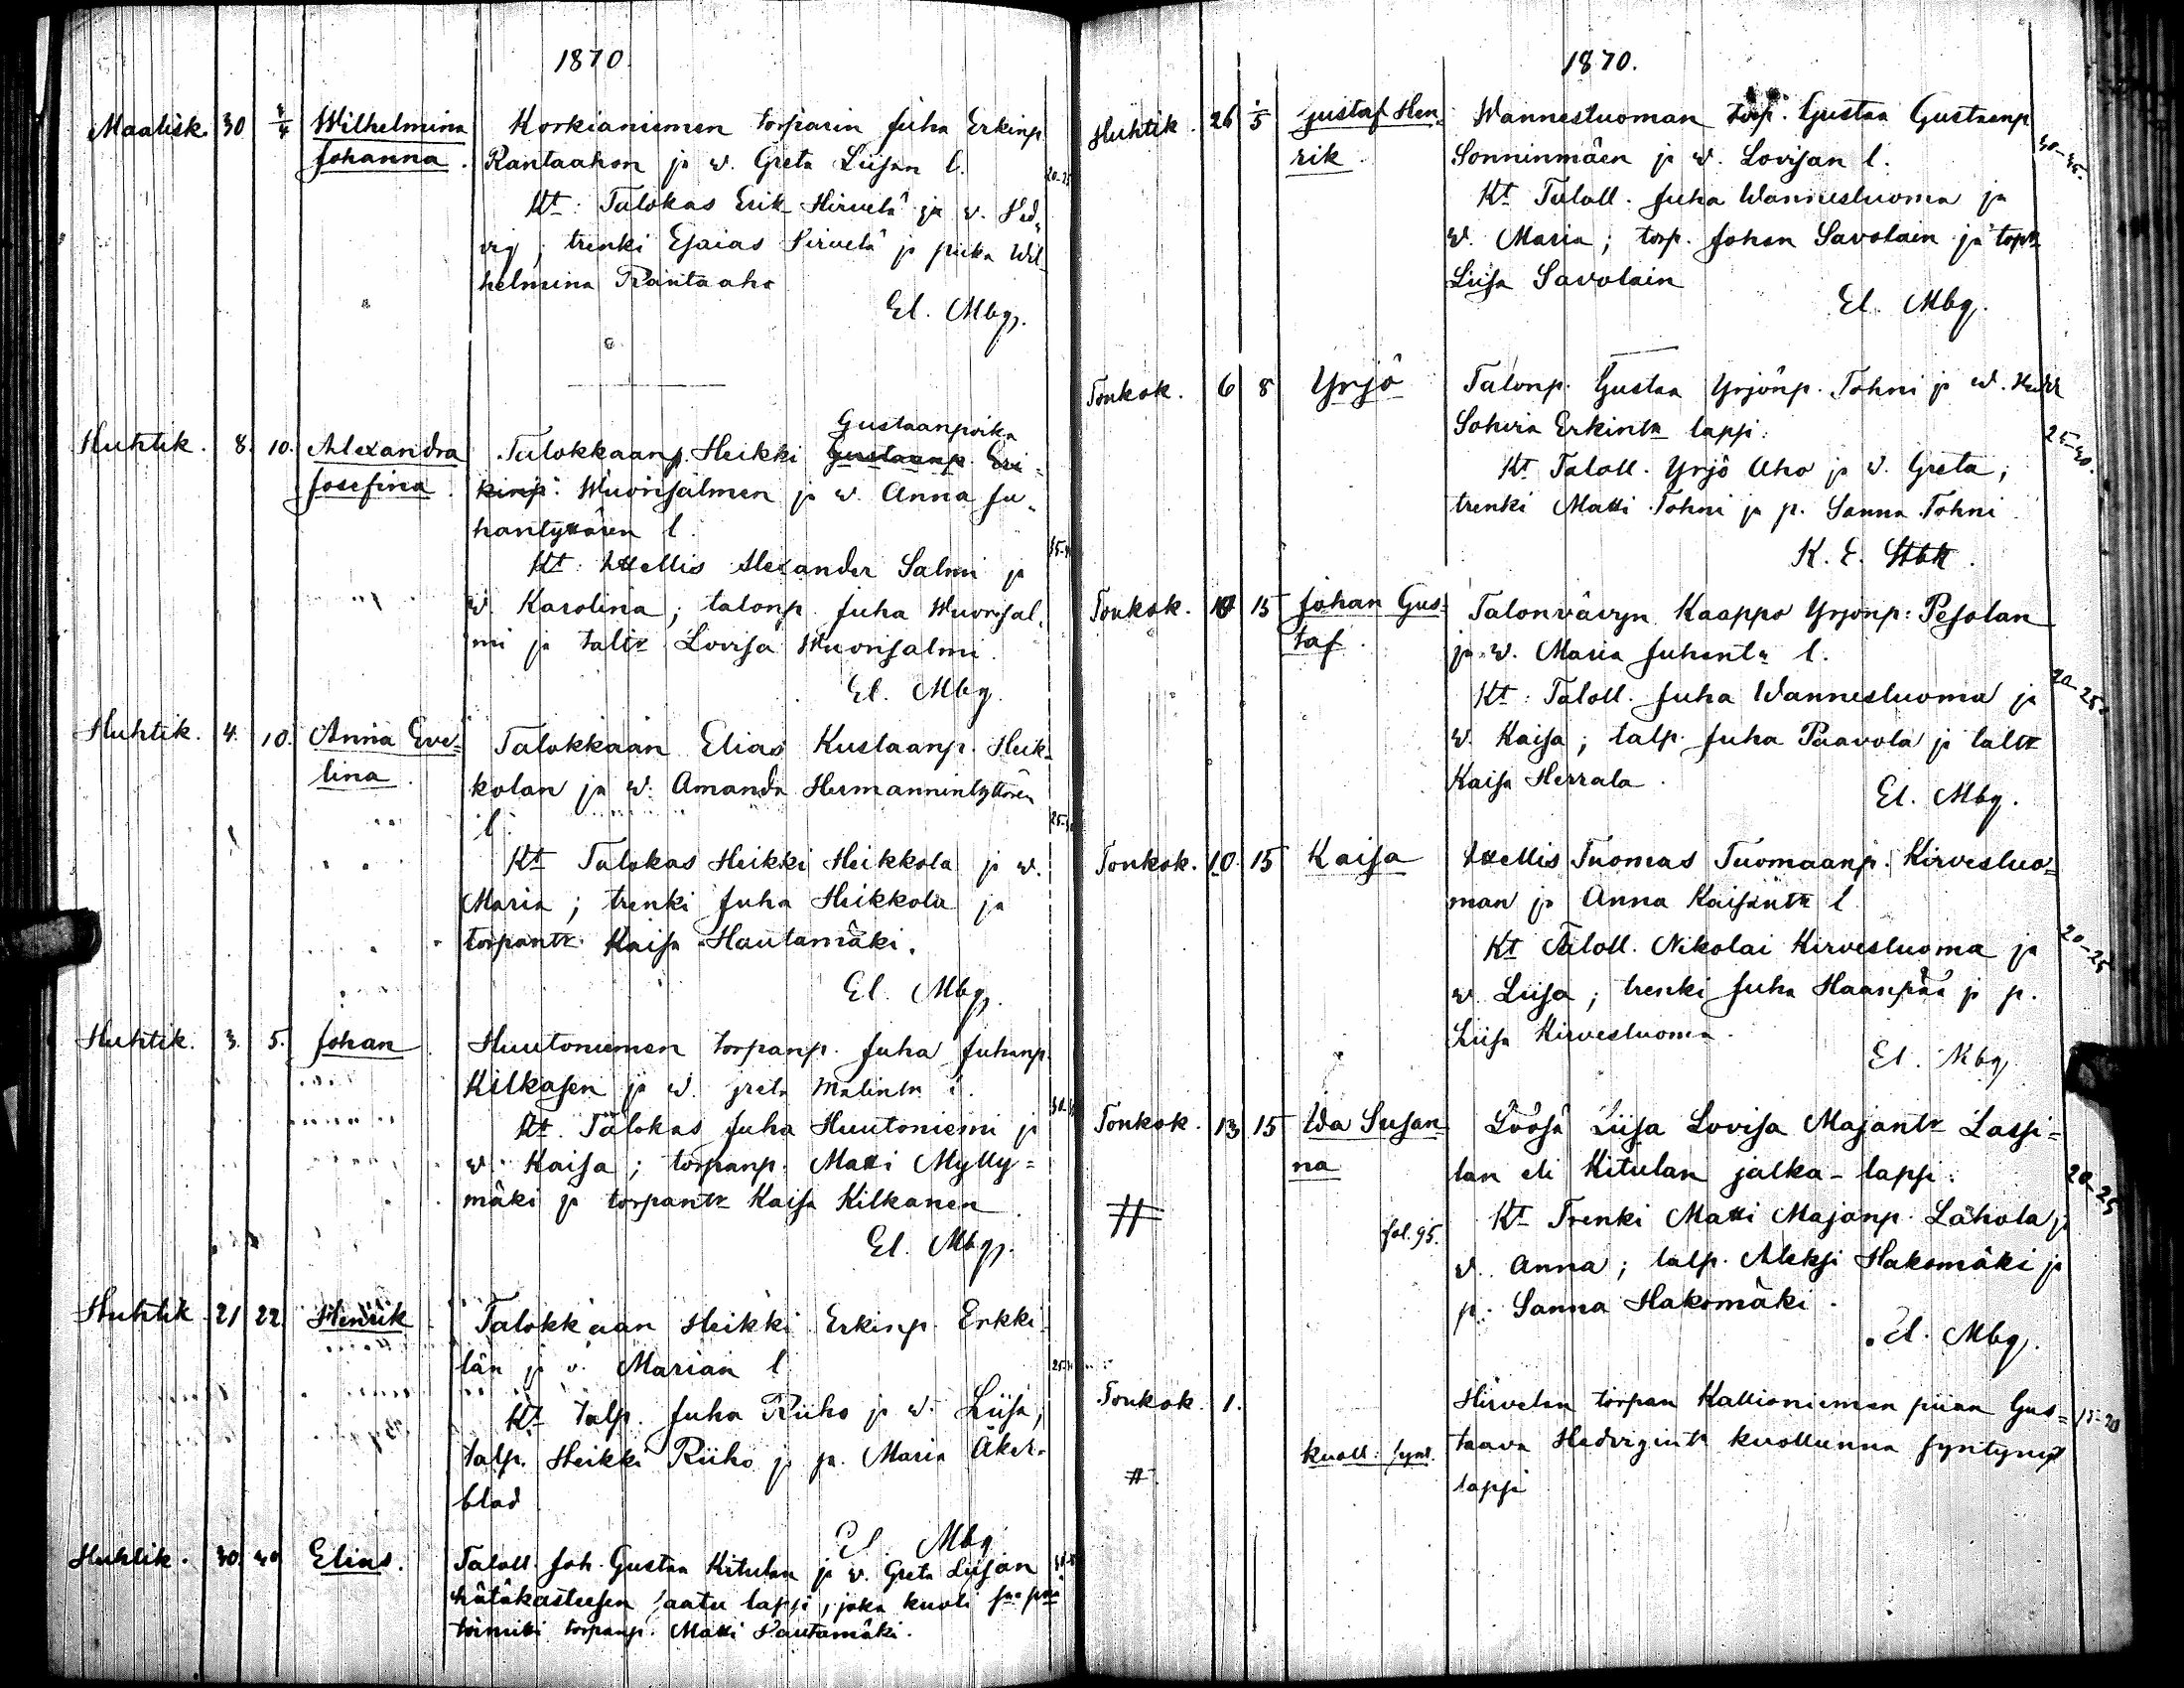 1870.
Maalisk. 30 1/4 Wilhelmina Korkianiemen torparin Juha Erkinp.
Johanna. Rantaahon ja w. Greta Liisan l.
20-25
Kt: Talokas Erik Hirvelä ja w. Hed-
vig; trenki Esaias Hirvelä ja piika Wil-
helmina Rantaaho
El. Mbg.
Gustaanpoika
Huhtik. 8. 10. Alexandra Talokkaanp. Heikki Gustaanp. Eri-
Josefina. kinp. Wuorisalmen ja w. Anna Ju-
hantyttären l.
Kt: Itellis Alexander Salmi ja
w. Karolina; talonp. Juha Wuorisal-
mi ja taltr Lovisa Wuorisalmi.
El. Mbg.
Huhtik. 4. 10. Anna Eve- Talokkaan Elias Kustaanp. Heik-
lina. kolan ja w. Amanda Hermannintyttären
l.
Kt Talokas Heikki Heikkola ja w.
Maria; trenki Juha Heikkola ja
torpantr. Kaisa Hautamäki.
El. Mbg.
Huhtik. 3. 5. Johan Huutoniemen torpanp. Juha Juhanp.
Kilkasen ja w. greta Matintr l.
Kt. Talokas Juha Huutoniemi ja
w. Kaisa; torpanp. Matti Mylly=
mäki ja torpantr Kaisa Kilkanen
El. Mbg.
Huhtik 21 22. Henrik Talokkaan Heikki Erkinp. Erkki-
län ja v. Marian l
Kt talp. Juha Riiho ja w. Liisa,
talp. Heikki Riiho ja p. Maria Åker-
blad
El. Mbg
Huhtik. 30. 30 Elias. Taloll. Joh. Gustaa Kitulan ja w. Greta Liisan
hätäkasteesen saatu lapsi, joka kuoli
toimitti torpanp. Matti Hautamäki.
1870.
Huhtik. 26 1/5 Gustaf Hen- Wannesluoman torp. Gustaa Gustaanp
rik Sonninmäen ja w. Lovisan l.
30-35.
Kt Taloll. Juha Wannesluoma ja
w. Maria; torp. Johan Savolain ja toptr
Liisa Savolain
El. Mbg.
Toukok. 6 8 Yrjö Talonp. Gustaa Yrjönp. Tohni ja w. Hedda
Sohvia Erkintr lapsi:
25-30.
Kt Taloll. Yrjö Aho ja w. Greta;
trenki Matti Tohni ja p. Sanna Tohni
K. E. Stbk.
Toukok. 10 15 Johan Gus- Talonvävyn Kaappo Yrjönp: Pesolan
taf. ja w. Maria Juhantr l.
20-25.
Kt: Taloll. Juha Wannesluoma ja
w. Kaisa; talp. Juha Paavola ja taltr
Kaisa Herrala.
El. Mbg.
Toukok. 10. 15 Kaisa Itellis Tuomas Tuomaanp. Kirvesluo=
man ja Anna Kaisantr l
20-25
Kt Taloll. Nikolai Kirvesluoma ja
w. Liisa; trenki Juha Haanpää ja p.
Liisa Kirvesluoma.
El. Mbg
Toukok. 13 15 Ida Susan- Löösä Liisa Lovisa Majantr Lassi=
na lan eli Kitulan jalka-lapsi:
20-25
# fol. 95. Kt Trenki Matti Majanp. Lahola ja
w. Anna; talp. Aleksi Hakomäki ja
p. Sanna Hakomäki.
El. Mbg.
Toukok. 1. Hirvelan torpan Kallioniemen piian Gus= 15-20
kuoll: synt. taava Hedvigintr kuollunna syntynyt
# lapsi